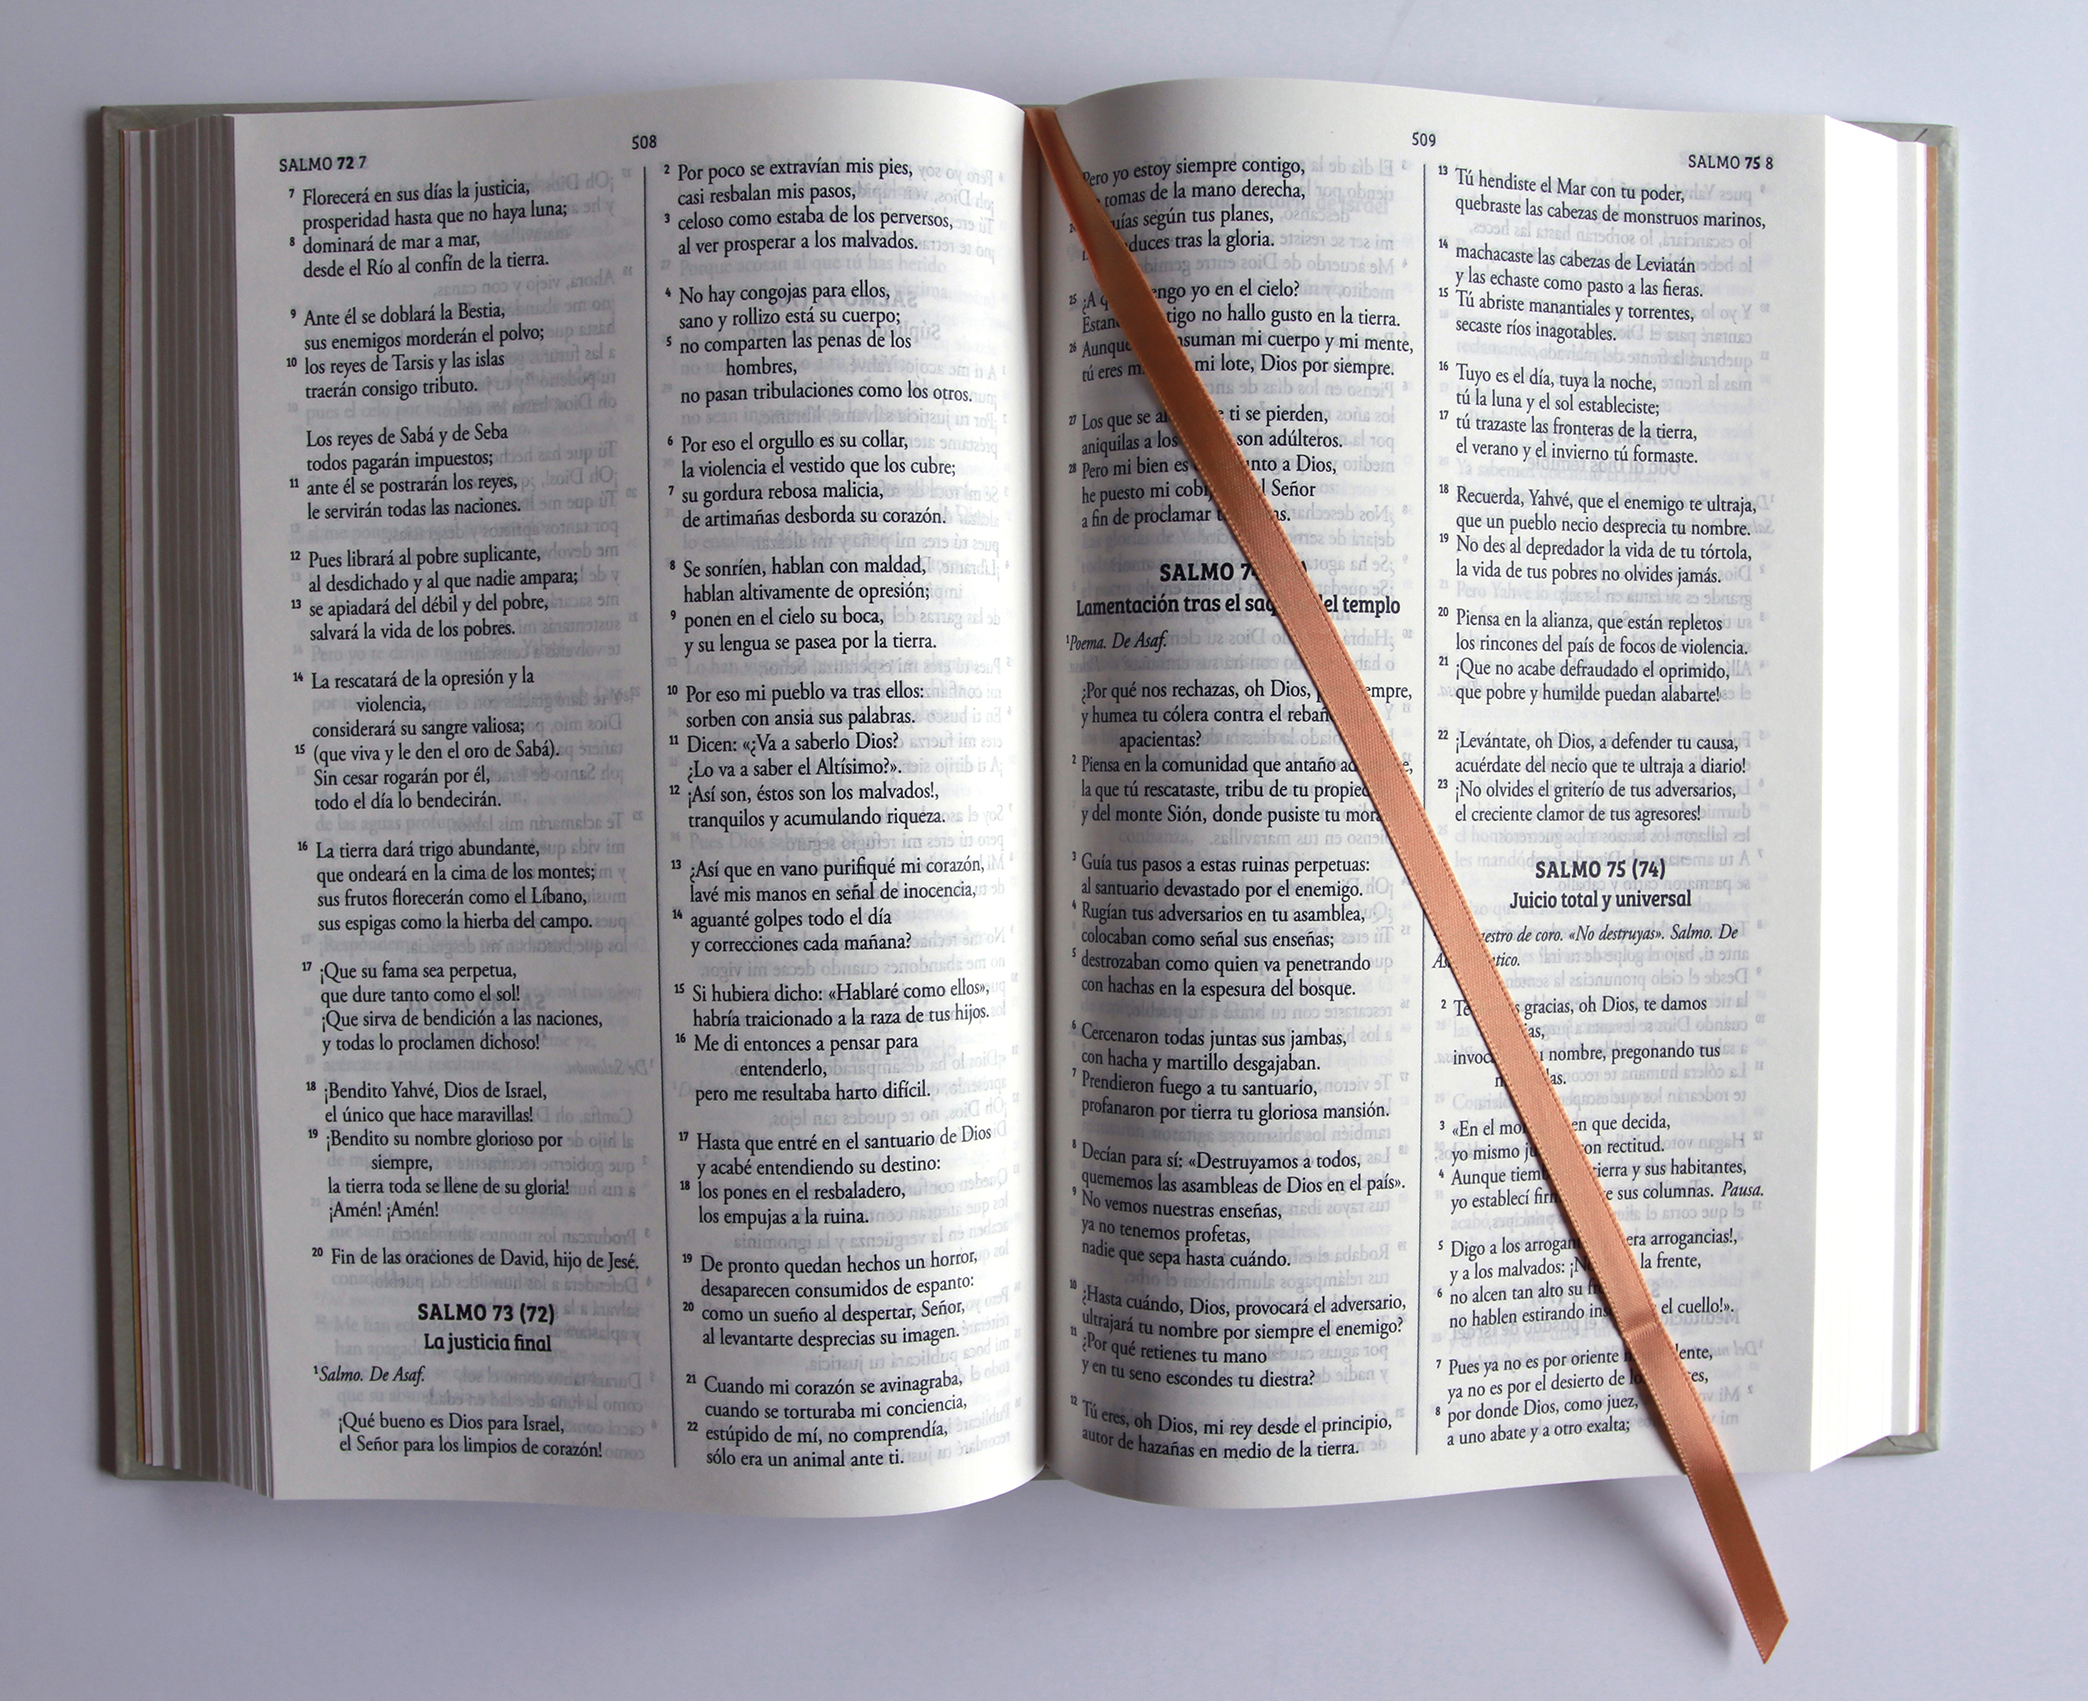 508
SALMO 72 7
7 Florecerá en sus días la justicia,
prosperidad hasta que no haya luna;
8 dominará de mar a mar,
desde el Río al confín de la tierra.
9 Ante él se doblará la Bestia,
sus enemigos morderán el polvo;
10 los reyes de Tarsis y las islas
traerán consigo tributo.
Los reyes de Sabá y de Seba
todos pagarán impuestos;
11 ante él se postrarán los reyes,
le servirán todas las naciones.
12 Pues librará al pobre suplicante,
al desdichado y al que nadie ampara;
13 se apiadará del débil y del pobre,
salvará la vida de los pobres.
14 La rescatará de la opresión y la
violencia,
considerará su sangre valiosa;
15 (que viva y le den el oro de Sabá).
Sin cesar rogarán por él,
todo el día lo bendecirán.
16 La tierra dará trigo abundante,
que ondeará en la cima de los montes;
sus frutos florecerán como el Líbano,
sus espigas como la hierba del campo.
17 ¡Que su fama sea perpetua,
que dure tanto como el sol!
¡Que sirva de bendición a las naciones,
y todas lo proclamen dichoso!
18 ¡Bendito Yahvé, Dios de Israel,
el único que hace maravillas!
19 ¡Bendito su nombre glorioso por
siempre,
la tierra toda se llene de su gloria!
¡Amén! ¡Amén!
20 Fin de las oraciones de David, hijo de Jesé.
SALMO 73 (72)
La justicia final
1 Salmo. De Asaf.
¡Qué bueno es Dios para Israel,
el Señor para los limpios de corazón!
2 Por poco se extravían mis pies,
casi resbalan mis pasos,
3 celoso como estaba de los perversos,
al ver prosperar a los malvados.
4 No hay congojas para ellos,
sano y rollizo está su cuerpo;
5 no comparten las penas de los
hombres,
no pasan tribulaciones como los otros.
6 Por eso el orgullo es su collar,
la violencia el vestido que los cubre;
7 su gordura rebosa malicia,
de artimañas desborda su corazón.
8 Se sonríen, hablan con maldad,
hablan altivamente de opresión;
9 ponen en el cielo su boca,
y su lengua se pasea por la tierra.
10 Por eso mi pueblo va tras ellos:
sorben con ansia sus palabras.
11 Dicen: «¿Va a saberlo Dios?
¿Lo va a saber el Altísimo?».
12 ¡Así son, éstos son los malvados!,
tranquilos y acumulando riqueza.
13 ¿Así que en vano purifiqué mi corazón,
lavé mis manos en señal de inocencia,
14 aguanté golpes todo el día
y correcciones cada mañana?
15 Si hubiera dicho: «Hablaré como ellos»,
habría traicionado a la raza de tus hijos.
16 Me di entonces a pensar para
entenderlo,
pero me resultaba harto difícil.
17 Hasta que entré en el santuario de Dios
y acabé entendiendo su destino:
18 los pones en el resbaladero,
los empujas a la ruina.
19 De pronto quedan hechos un horror,
desaparecen consumidos de espanto:
20 como un sueño al despertar, Señor,
al levantarte desprecias su imagen.
21 Cuando mi corazón se avinagraba,
cuando se torturaba mi conciencia,
22 estúpido de mí, no comprendía,
sólo era un animal ante ti.
509
SALMO 75 8
Pero yo estoy siempre contigo,
tomas de la mano derecha,
según tus planes,
tras la gloria.
25 yo en el cielo?
no hallo gusto en la tierra.
26 Aunque mi cuerpo y mi mente,
tú eres mi lote, Dios por siempre.
27 Los que se ti se pierden,
aniquilas a los son adúlteros.
28 Pero mi bien es a Dios,
he puesto mi Señor
a fin de proclamar
SALMO
Lamentación tras el del templo
1 Poema. De Asaf.
¿Por qué nos rechazas, oh Dios,
y humea tu cólera contra el
apacientas?
2 Piensa en la comunidad que antaño
la que tú rescataste, tribu de tu
y del monte Sión, donde pusiste tu
3 Guía tus pasos a estas ruinas perpetuas:
al santuario devastado por el enemigo.
4 Rugían tus adversarios en tu asamblea,
colocaban como señal sus enseñas;
5 destrozaban como quien va penetrando
con hachas en la espesura del bosque.
6 Cercenaron todas juntas sus jambas,
con hacha y martillo desgajaban.
7 Prendieron fuego a tu santuario,
profanaron por tierra tu gloriosa mansión.
8 Decían para sí: «Destruyamos a todos,
quememos las asambleas de Dios en el país».
9 No vemos nuestras enseñas,
ya no tenemos profetas,
nadie que sepa hasta cuándo.
10 ¿Hasta cuándo, Dios, provocará el adversario,
ultrajará tu nombre por siempre el enemigo?
11 ¿Por qué retienes tu mano
y en tu seno escondes tu diestra?
12 Tú eres, oh Dios, mi rey desde el principio,
autor de hazañas en medio de la tierra.
13 Tú hendiste el Mar con tu poder,
quebraste las cabezas de monstruos marinos,
14 machacaste las cabezas de Leviatán
y las echaste como pasto a las fieras.
15 Tú abriste manantiales y torrentes,
secaste ríos inagotables.
16 Tuyo es el día, tuya la noche,
tú la luna y el sol estableciste;
17 tú trazaste las fronteras de la tierra,
el verano y el invierno tú formaste.
18 Recuerda, Yahvé, que el enemigo te ultraja,
que un pueblo necio desprecia tu nombre.
19 No des al depredador la vida de tu tórtola,
la vida de tus pobres no olvides jamás.
20 Piensa en la alianza, que están repletos
los rincones del país de focos de violencia.
21 ¡Que no acabe defraudado el oprimido,
que pobre y humilde puedan alabarte!
22 ¡Levántate, oh Dios, a defender tu causa,
acuérdate del necio que te ultraja a diario!
23 ¡No olvides el griterío de tus adversarios,
el creciente clamor de tus agresores!
SALMO 75 (74)
Juicio total y universal
de coro. «No destruyas». Salmo. De
2 gracias, oh Dios, te damos
nombre, pregonando tus
3 «En el que decida,
yo mismo con rectitud.
4 Aunque tierra y sus habitantes,
yo establecí sus columnas. Pausa.
5 Digo a los arrogancias!,
y a los malvados: la frente,
6 no alcen tan alto su
no hablen estirando el cuello!».
7 Pues ya no es por oriente
ya no es por el desierto de
8 por donde Dios, como juez,
a uno abate y a otro exalta;